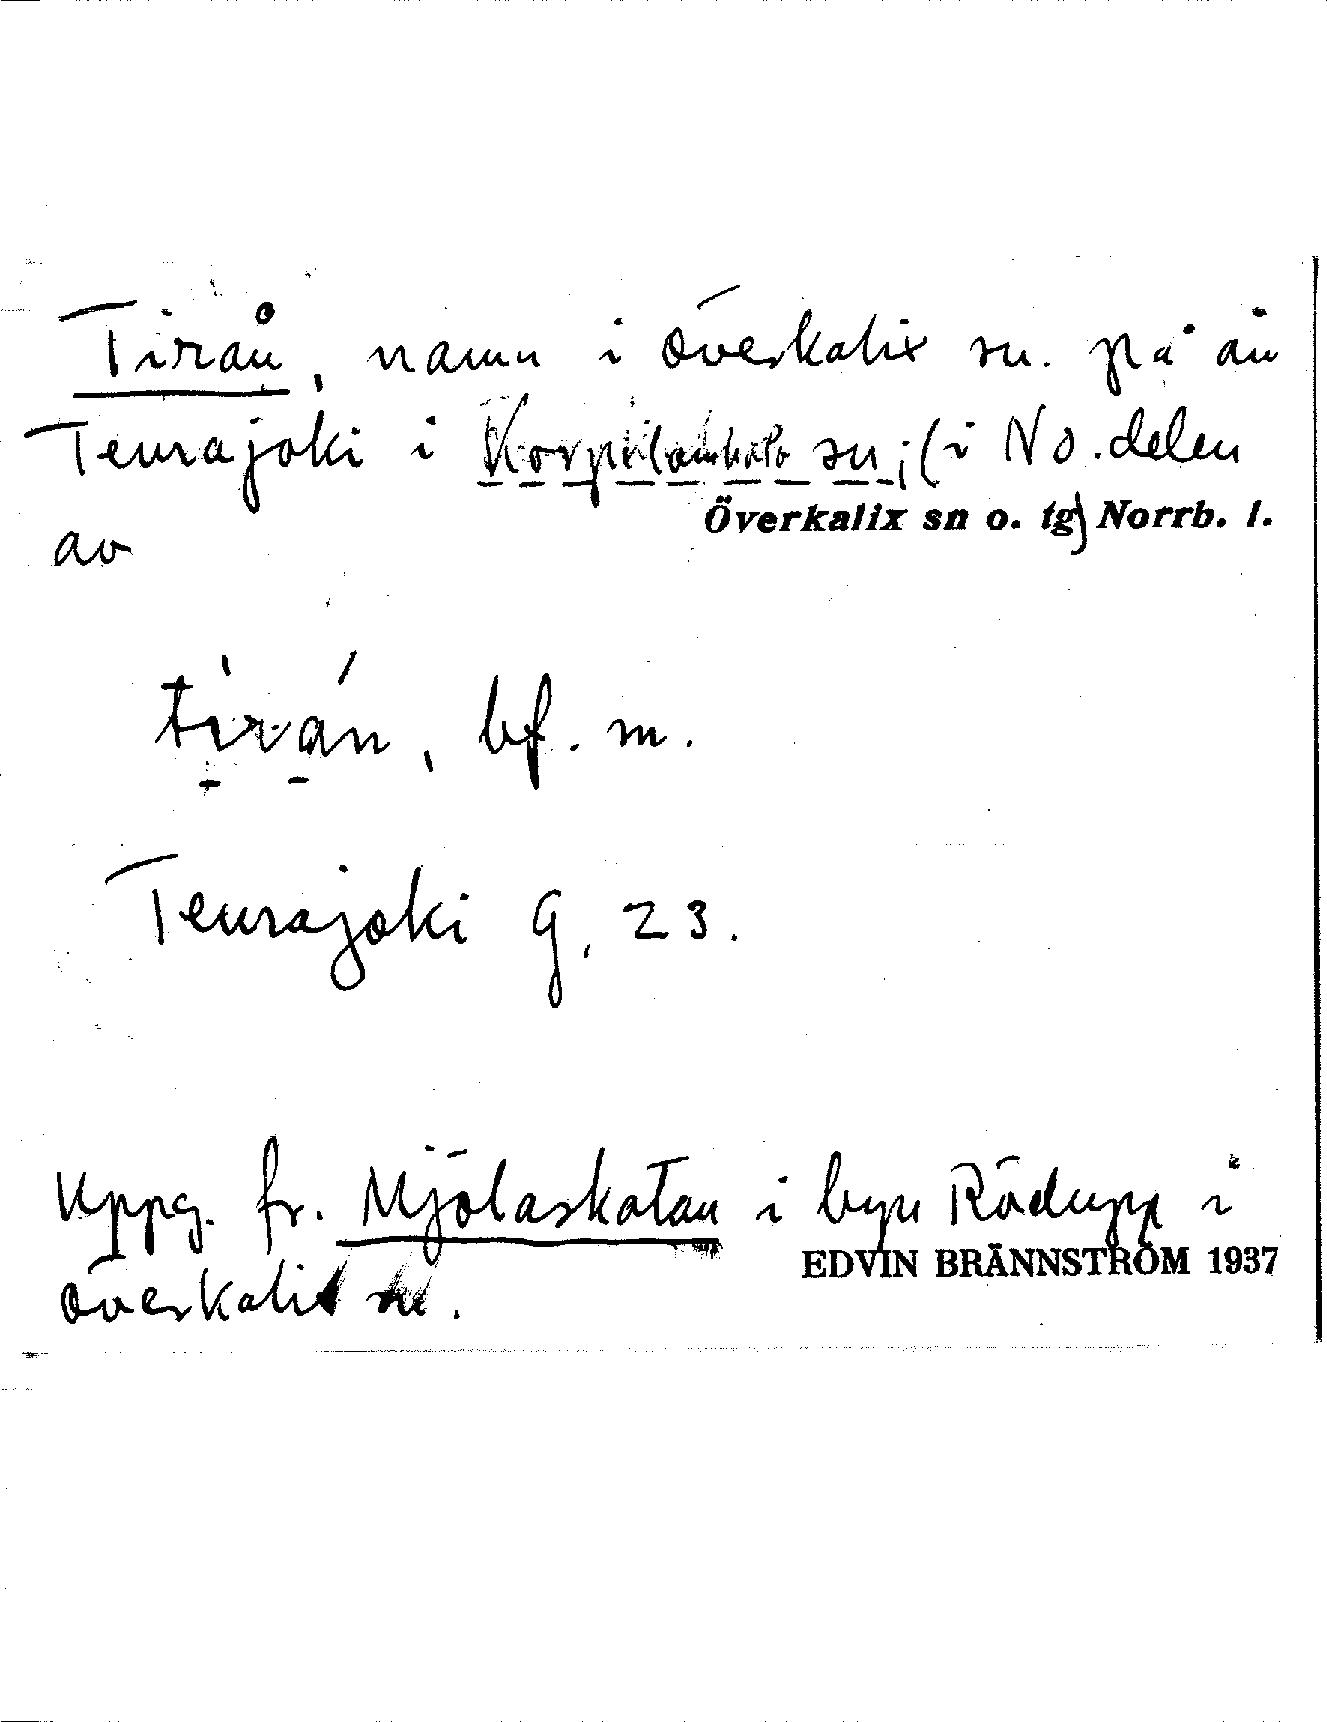 Tirån, namn i Överkalix sn. på ån
Teurajoki i Korpilombolo sn; (i No. delen
av Överkalix sn o. tg) Norrb. l.
tìrán, bf. m.
Teurajoki g. 23.
Uppg. fr. Mjölaskatan i byn Rödupp i
EDVIN BRÄNNSTRÖM 1937
Överkalix sn.